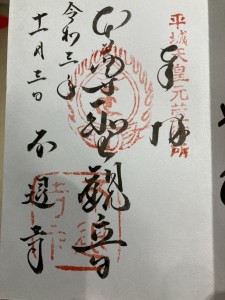 平城天皇元萱御所
奉拝
本尊聖観音
令和三年
十一月三日
不退寺